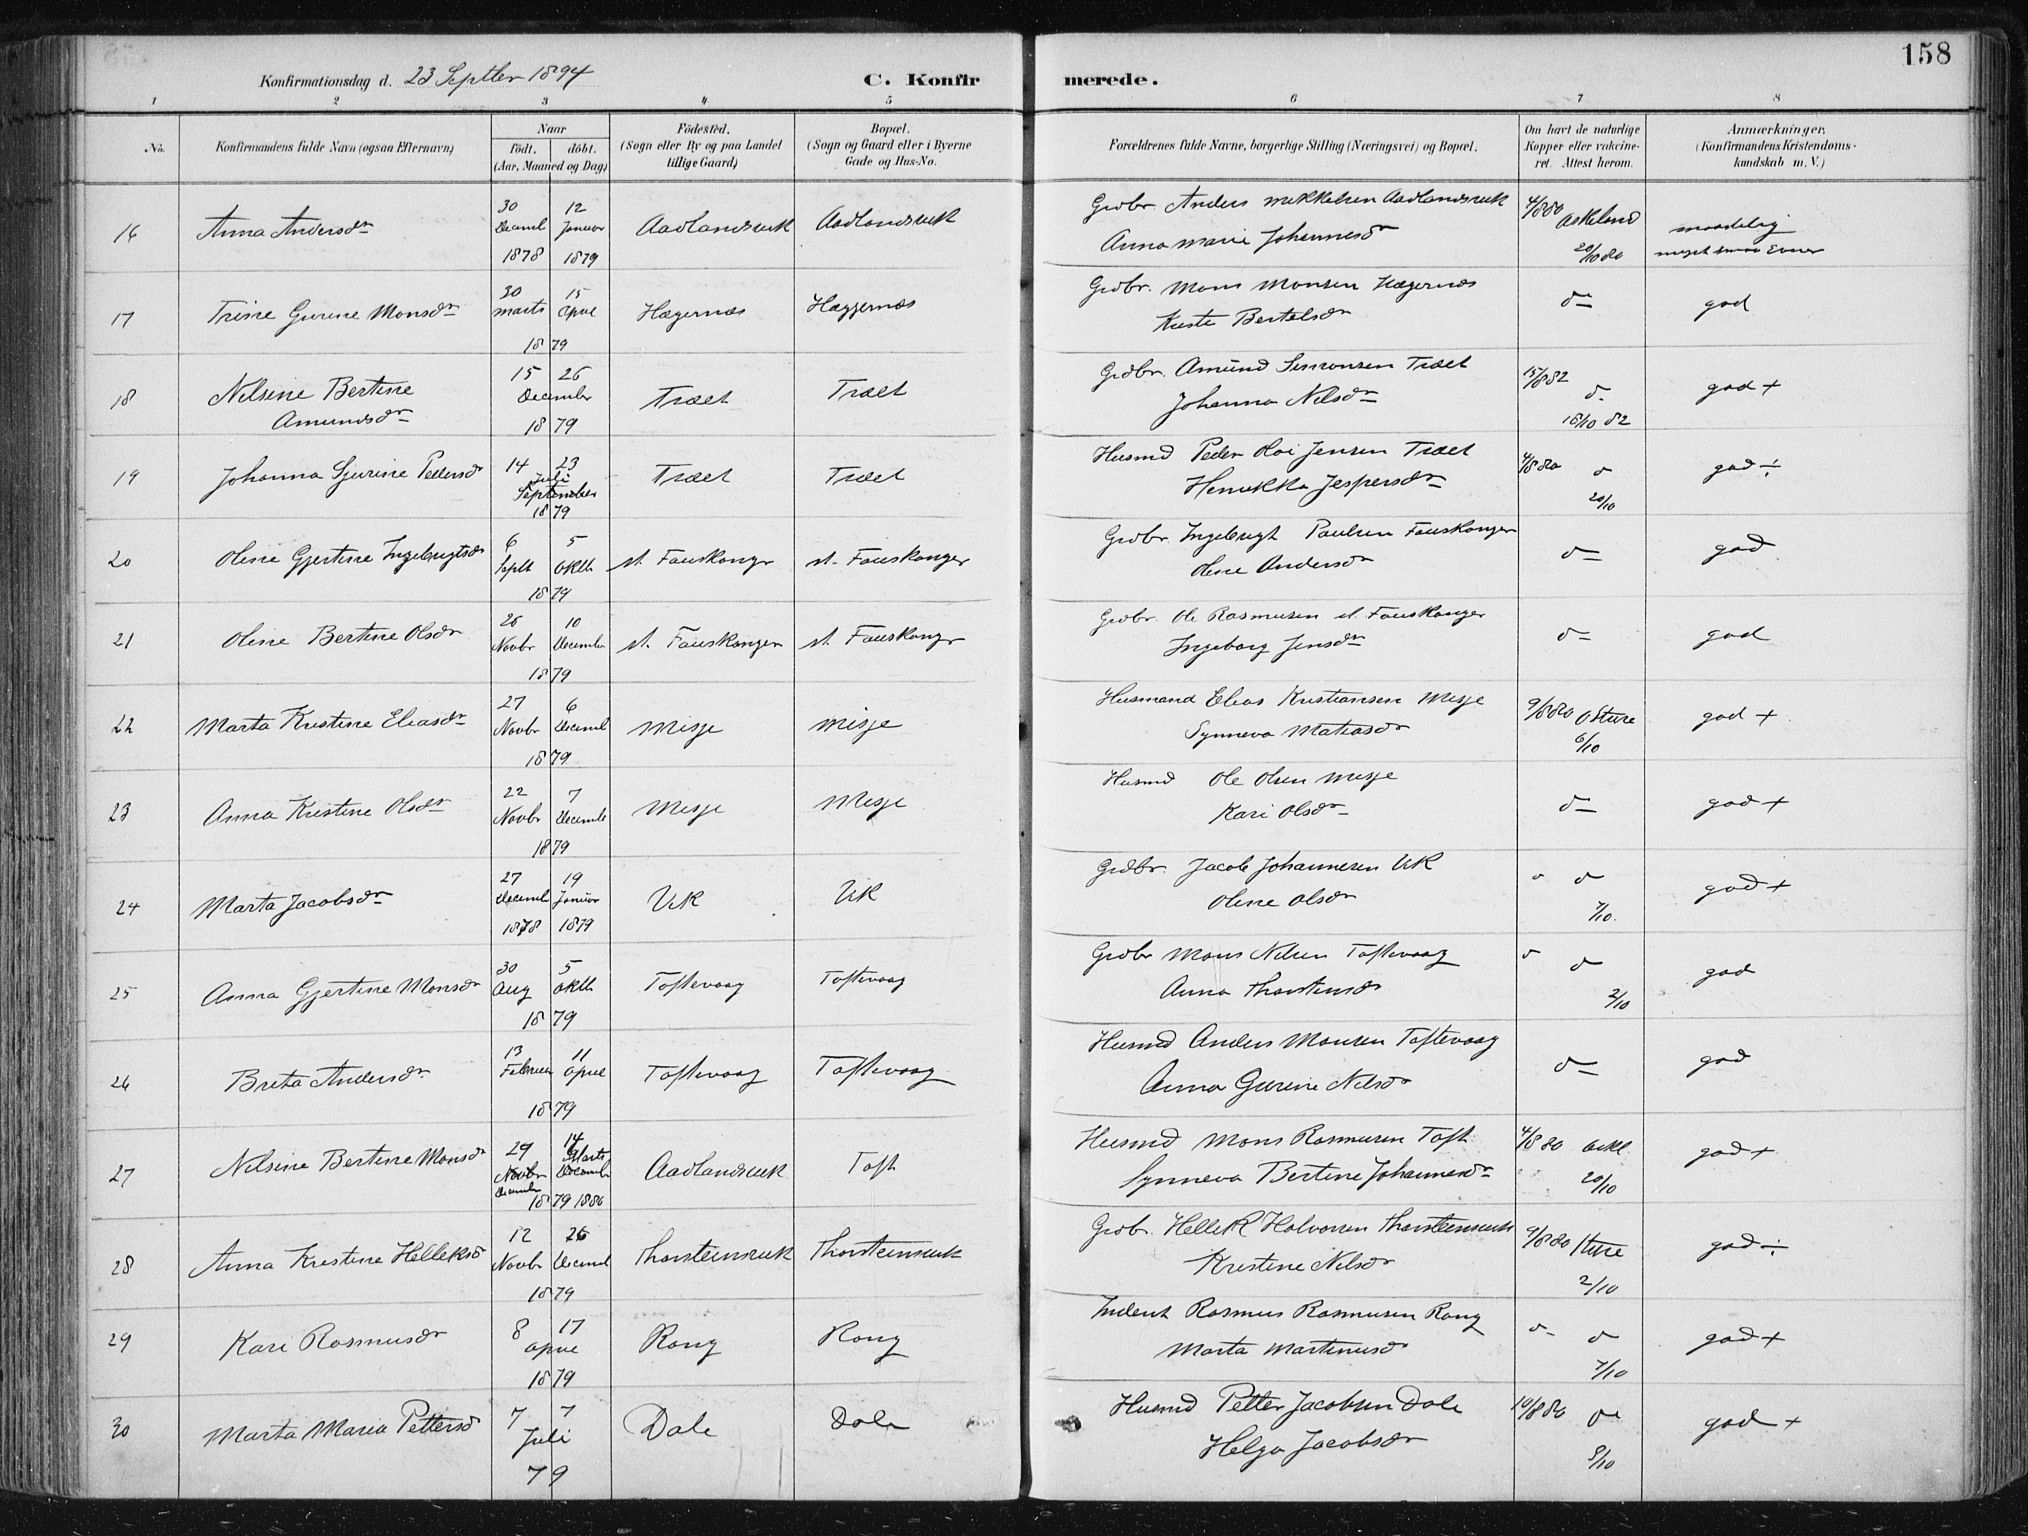 158
Konfirmationsdag d. 23 Septber 1894 C. Konfirmerede.
1 2 3 4 5 6 7 8
No. Konfirmandens fulde Navn (ogsaa Efternavn) Naar født. døbt. (Aar, Maaned og Dag) Födested. (Sogn eller By og paa Landet tillige Gaard) Bopæl. (Sogn og Gaard eller i Byerne Gade og Hus-No. Forældrenes fulde Navne, borgerlige Stilling (Næringsvei) og Bopæl. Om havt de naturlige Kopper eller vakcineret. Attest herom. Anmærkninger. (Konfirmandens Kristendomskundskab m. V.)
16 Anna Andersdr 30 Decemb 1878 12 Januar 1879 Aadlandsvik Aadlandsvik Grdbr. Anders Mikkelsen Aadlandsvik
Anna Marie Johannesdr 4/8 80 Askeland 20/10 80 maadelig meget smaa Evner
17 Trine Gurine Monsdr 30 Marts 15 April 1879 Hægernæs Hæggernæs Grdbr. Mons Monsen Hægernæs
Kirsti Bertelsdr do god
18 Nilsine Bertine Amundsdr 15 26 December 1879 Træet Træet Grdbr. Amund Simonsen Træet
Johanna Nilsdr 15/8 82 do 18/10 82 god +
19 Johanna Sjurine Pedersd 14 23 Juli September 1879 Træet Træet Husmd Peder Jensen Træet
Henrikka Jespersdr 4/8 80 do 20/10 god ÷
20 Oline Gjertine Ingebrigtsdr 6 Septb 5 Oktb 1879 st. Fauskanger st. Fauskanger Grdbr. Ingebrigt Paulsen Fauskanger
Oline Andersdr do god
21 Oline Bertine Olsdr 26 Novbr 10 December 1879 st. Fauskanger st. Fauskanger Grdbr. Ole Rasmusen st. Fauskanger
Ingeborg Jensdr do god
22 Marta Kristine Eliasdr 27 Novbr 6 Decemb 1879 Misje Misje Husmand Elias Kristiansen Misje
Synneva Matiasdr 9/8 80 Sture 6/10 god +
23 Anna Kristine Olsdr 22 Novbr 7 Decemb 1879 Misje Misje Husmd Ole Olsen Misje
Kari Olsdr do god +
24 Marta Jacobsdr 27 Decemb 1878 19 Januar 1879 Vik Vik Grdbr. Jacob Johannesen Vik
Oline Olsdr do do 7/10. god +
25 Anna Gjertine Monsdr 30 Aug 5 Oktb 1879 Toftevaag Toftevaag Grdbr Mons Nilsen Toftevaag
Anna Thorstensdr do do 2/10 god
26 Brita Andersdr 13 Februar 11 April 1879 Toftevaag Toftevaag Husmd Anders Monsen Toftevaag
Anna Gurine Nilsdr do god
27 Nilsine Bertine Monsdr 29 Novbr December 1879 14 Marts December 1880 Aadlandsvik Toft Husmd Mons Rasmusen Toft
Synneva Bertine Johannesdr 4/8 80 Askl. 20/10 god +
28 Anna Kristine Helleksd 12 Novbr 26 Decemb 1879 Thorsteinsvik Thorsteinsvik Grdbr. Hellek Halvorsen Thorsteinsvik
Kristine Nilsdr 9/8 80 Sture 2/10 god ÷
29 Kari Rasmusdr 8 17 April 1879 Rong Rong Inderst Rasmus Rasmusen Rong
Marta Martinusd do do 7/10 god +
30 Marta Maria Pettersd 7 7 Juli 79 Dale Dale Husmd Petter Jacobsen Dale
Helga Jacobsdr 10/8 80 do 8/10 god +